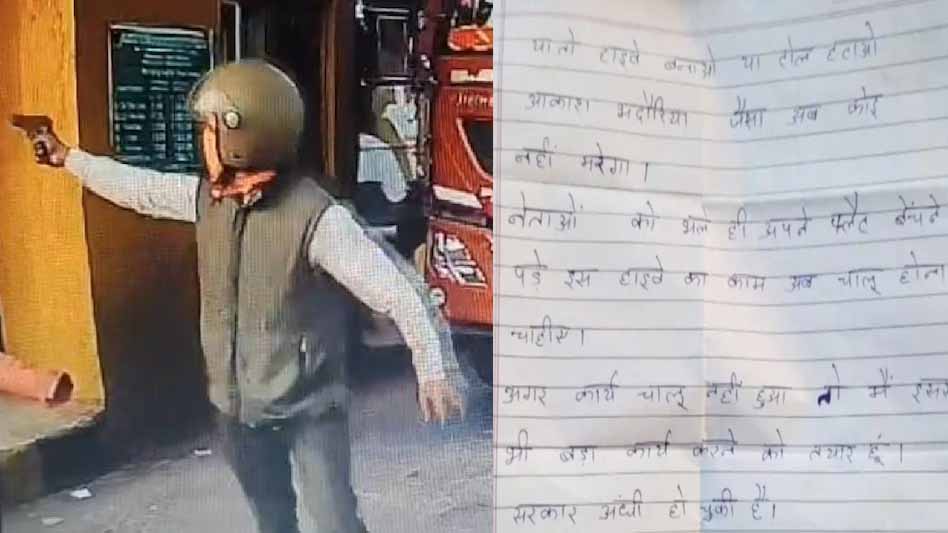 या तो हाइवे बनाओ या टोल हटाओ
आकाश भदौरिया जैसा अब कोई
नहीं मरेगा।
नेताओं को भले ही अपने फ्लैट बेंचने
पड़े इस हाइवे का काम अब चालू होना
चाहीए।
अगर कार्य चालू नहीं हुआ तो मैं इससे
भी बड़ा कार्य करने को तैयार हूं।
सरकार अंधी हो चुकी है।